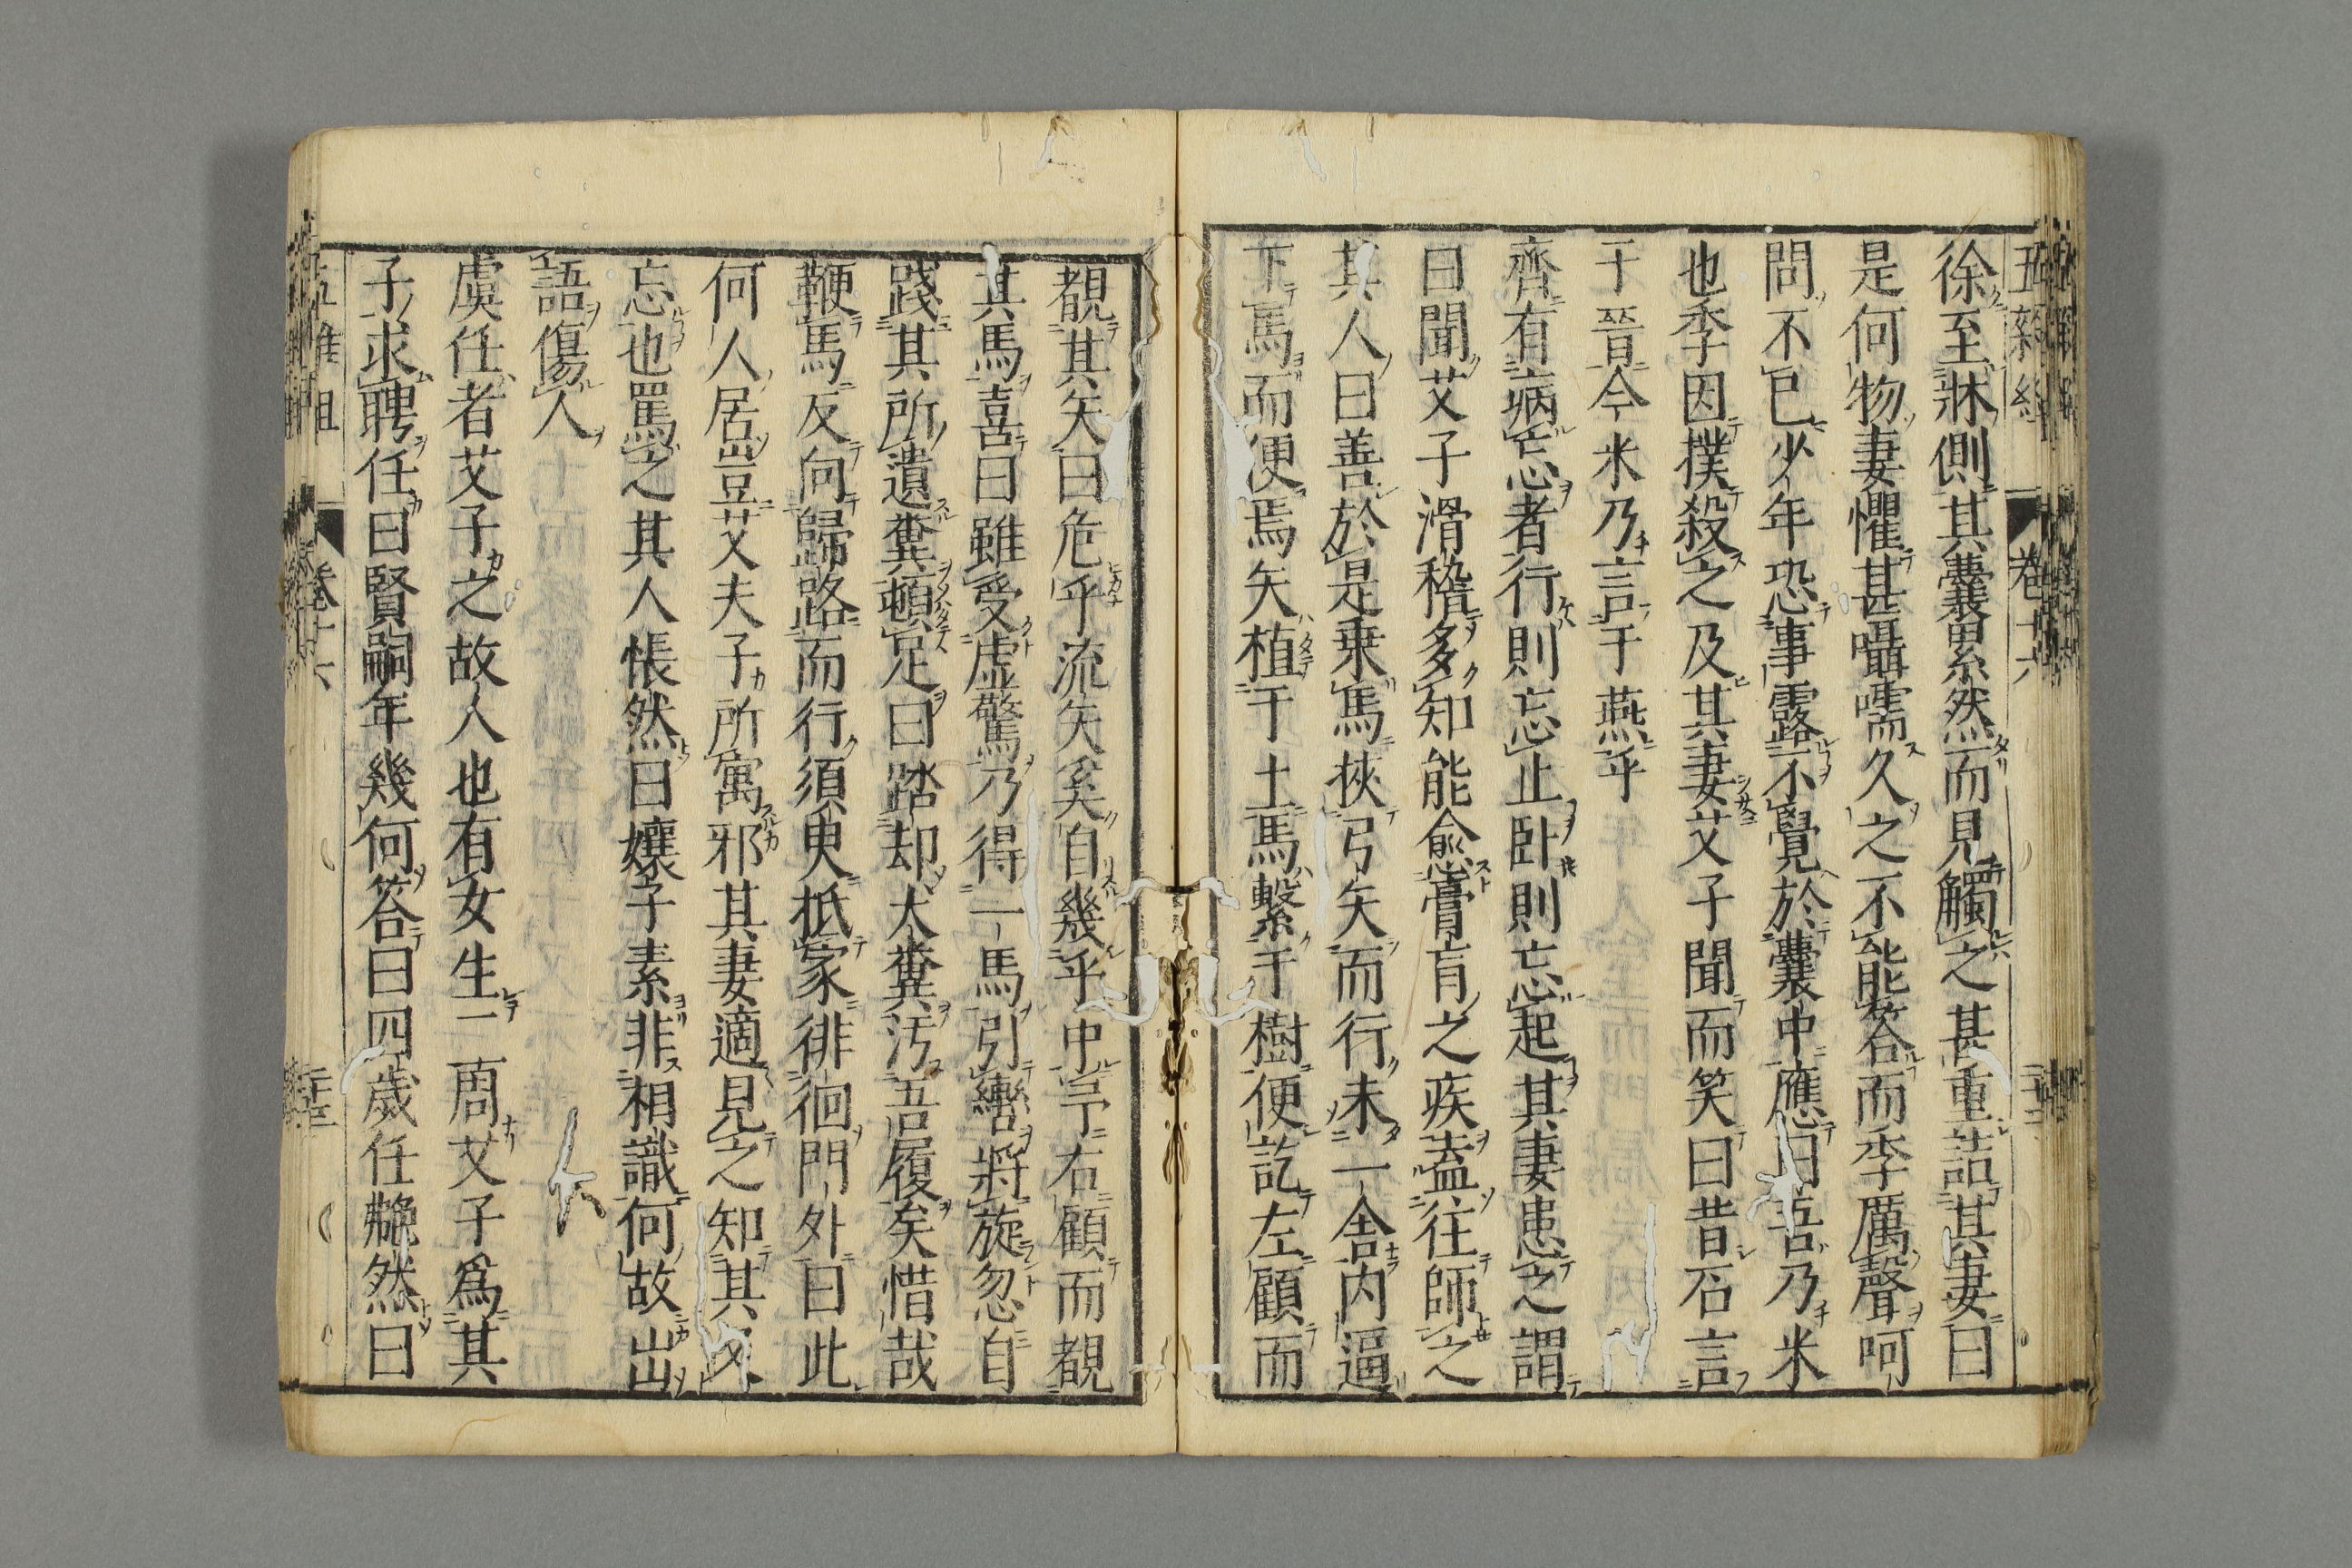 徐至牀側其囊累然而見觸之甚重詰其妻曰
是何物妻懼甚囁嚅久之不能答而季厲聲呵
問不已少年恐事露不覺於囊中應曰吾乃米
也季因撲殺之及其妻艾子聞而笑曰昔石言
于晉今米乃言于燕乎
齊有病忘者行則忘止臥則忘起其妻患之謂
曰聞艾子滑稽多知能愈膏肓之疾盍往師之
其人曰善於是乗馬挾弓矢而行未一舍内逼
下馬而便焉矢植于土馬繫于樹便訖左顧而
覩其矢曰危乎流矢奚自幾乎中予右顧而覩
其馬喜曰雖受虚驚乃得一馬引轡將旋忽自
踐其所遺糞頓足曰踏却犬糞汚吾履矣惜哉
鞭馬反向歸路而行須臾抵家徘徊門外曰此
何人居豈艾夫子所寓邪其妻適見之知其又
忘也罵之其人悵然曰孃子素非相識何故出
語傷人
虞任者艾子之故人也有女生二周艾子爲其
子求聘任曰賢嗣年幾何答曰四歲任艴然曰
五雜組
卷十六